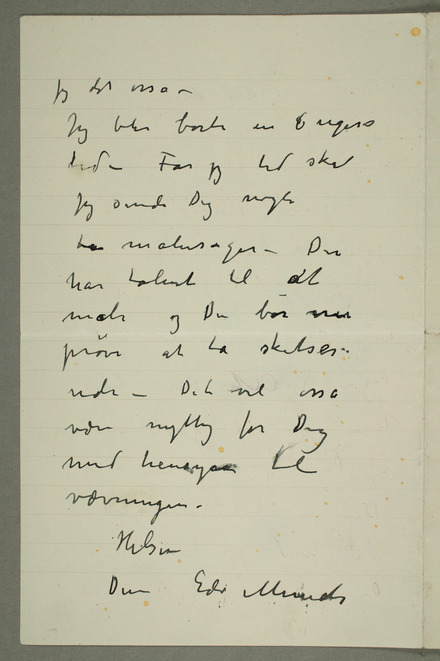 jeg det ossa –
Jeg blir borte en 8 ugers
tid – Far jeg tid skal
jeg sende Dig nogle
malersager – Du
har talent til at
male og Du bør
prøve at ta skitser
ude – Det vil ossa
være nyttig for Dig
med hensyn til
vævningen –
Hilsen
Din Edv Munch